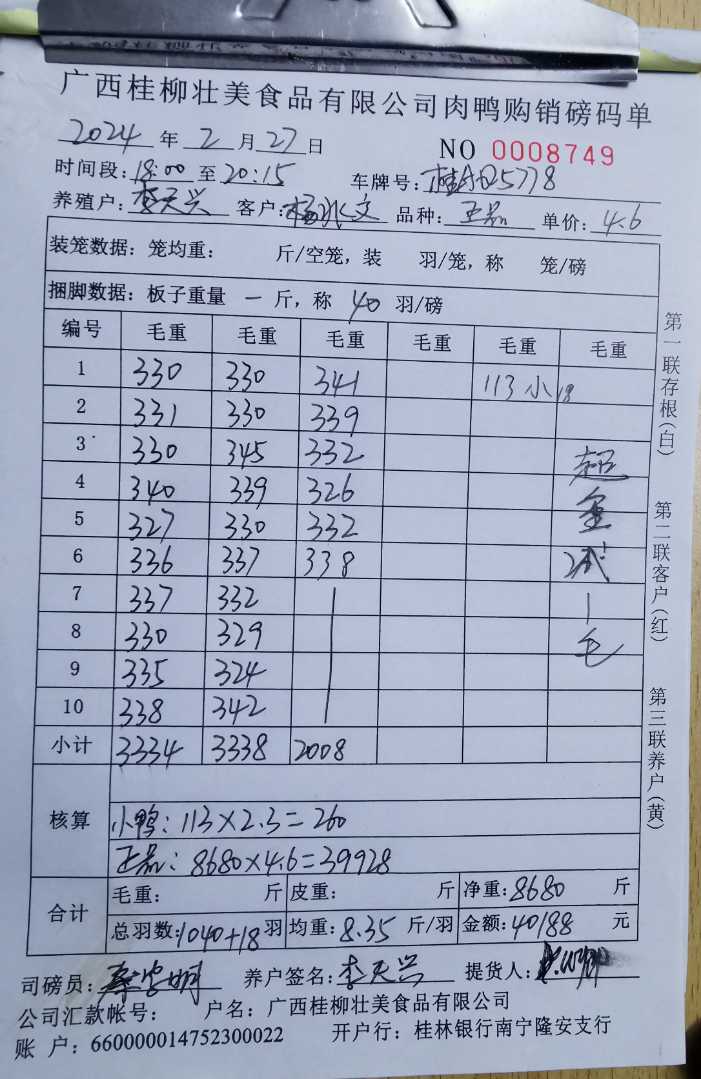 广西桂柳壮美食品有限公司肉鸭购销磅码单
2024 年 2 月 27 日 NO 0008749
时间段: 18:00 至 20:15 车牌号: 桂 25778
养殖户: 李天兴 客户: 杨冰文 品种: 正品 单价: 4.6
装笼数据: 笼均重: 斤/空笼, 装 羽/笼, 称 笼/磅
捆脚数据: 板子重量 一 斤, 称 40 羽/磅
编号 毛重 毛重 毛重 毛重 毛重 毛重
1 330 330 341 113 小 18
2 331 330 339
3 330 345 332
4 340 339 326
5 327 330 332
6 336 337 338
7 337 332 |
8 330 329 |
9 335 324 |
10 338 342 |
小计 3334 3338 2008
超重减1毛
核算
小鸭: 113×2.3=260
正品: 8680×4.6=39928
合计
毛重: 斤 皮重: 斤 净重: 8680 斤
总羽数: 1040+18 羽 均重: 8.35 斤/羽 金额: 40188 元
司磅员: 养户签名: 李天兴 提货人:
公司汇款帐号: 户名: 广西桂柳壮美食品有限公司
账 户: 660000014752300022 开户行: 桂林银行南宁隆安支行
第一联存根(白)
第二联客户(红)
第三联养户(黄)